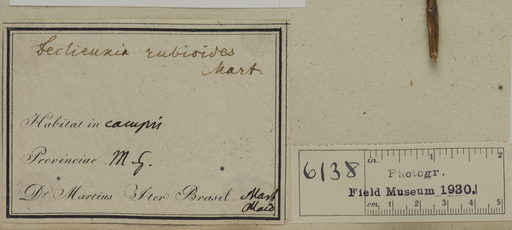 rubioides
Mart
Habitat in campis
Provinciae M. G.
Dr. Martius Iter Brasil. Mart
6138
in. 1 2
Photogr.
Field Museum 1930.
cm. 1 2 3 4 5